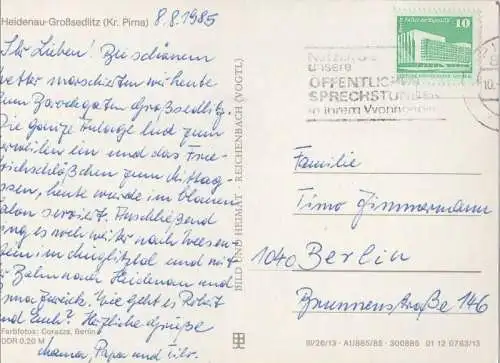 Heidenau-Großsedlitz (Kr. Pirna) 8.8.1985
Ihr Lieben! Bei schönem
Wetter marschierten wir heute
zum Barockgarten Großsedlitz.
Die ganze Anlage lud zum
Verweilen ein und das Frie-
drichschlößchen zum Mittag
essen, heute wurde im blauen
Salon serviert. Anschließend
ging es noch weiter nach Weesen-
stein im Müglitztal und mit
der Bahn nach Heidenau und
Pirna zurück. Wie geht es
und Euch? Herzliche Grüße
Mama, Papa und
Farbfotos: Corazza, Berlin
DDR 0,20 M
BILD UND HEIMAT · REICHENBACH (VOGTL)
10
Nutzen Sie
unsere
ÖFFENTLICHEN
SPRECHSTUNDEN
in Ihrem Wohngebiet
Familie
Timo Zimmermann
1040 Berlin
Brunnenstraße 146
III/26/13 · A1/885/85 · 300885 01 12 0763/13